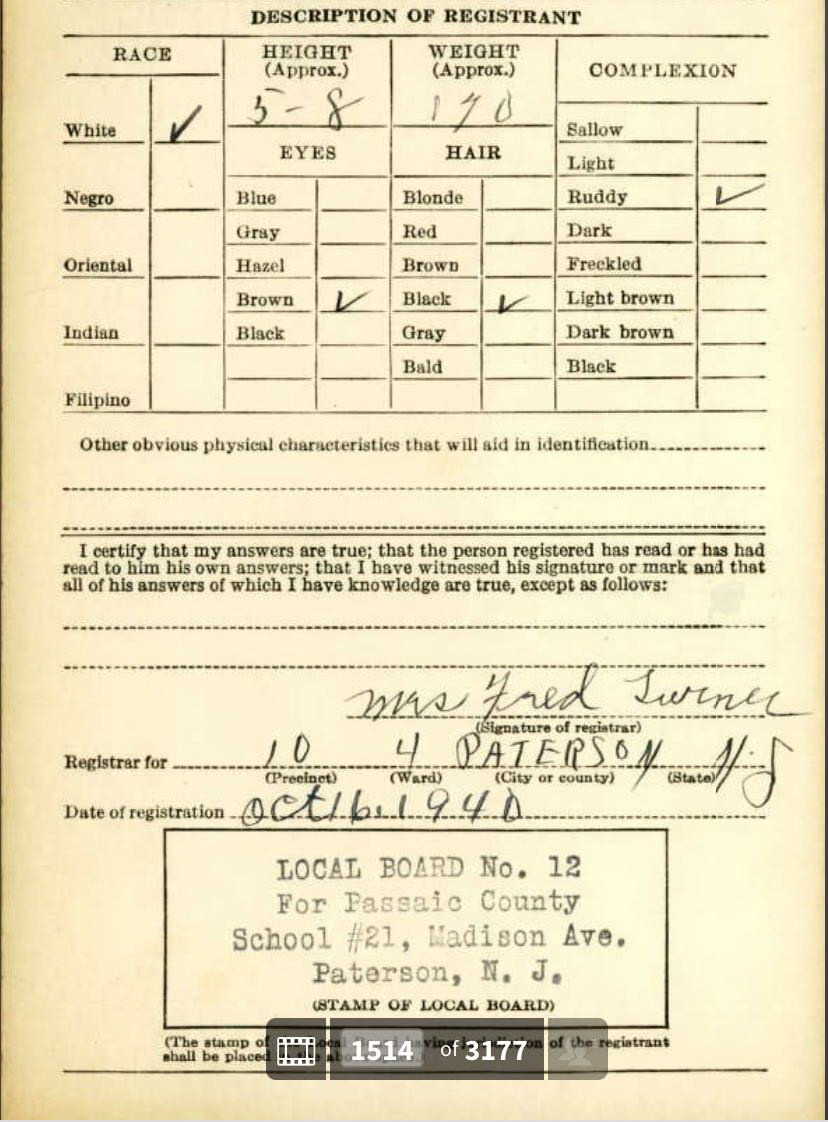 DESCRIPTION OF REGISTRANT
RACE HEIGHT (Approx.) WEIGHT (Approx.) COMPLEXION
5-8 170
White ✓ Sallow
EYES HAIR
Light
Negro Blue Blonde Ruddy ✓
Gray Red Dark
Oriental Hazel Brown Freckled
Brown ✓ Black ✓ Light brown
Indian Black Gray Dark brown
Bald Black
Filipino
Other obvious physical characteristics that will aid in identification
I certify that my answers are true; that the person registered has read or has had
read to him his own answers; that I have witnessed his signature or mark and that
all of his answers of which I have knowledge are true, except as follows:
Mrs Fred
(Signature of registrar)
Registrar for 10 4 PATERSON N.J
(Precinct) (Ward) (City or county) (State)
Date of registration Oct 16. 1940
LOCAL BOARD No. 12
For Passaic County
School #21, Madison Ave.
Paterson, N. J.
(STAMP OF LOCAL BOARD)
(The stamp of of the registrant
shall be placed
1514 of 3177